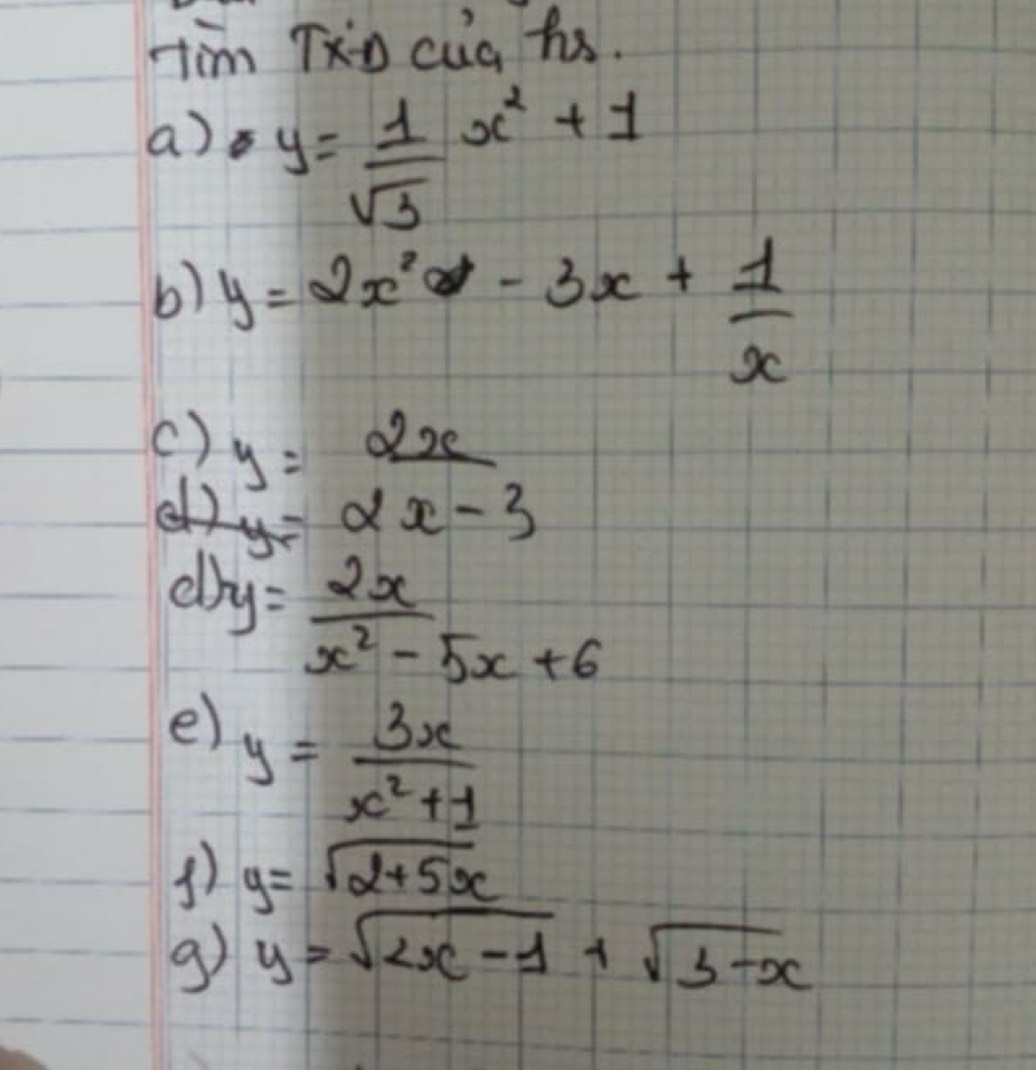 Tìm TXĐ của hs.
a) y = 1/√3 x² + 1
b) y = 2x² - 3x + 1/x
c) y = 2x/(2x - 3)
d) y =
d) y = 2x/(x² - 5x + 6)
e) y = 3x/(x² + 1)
f) y = √(2+5x)
g) y = √(2x - 1) + √(3 - x)